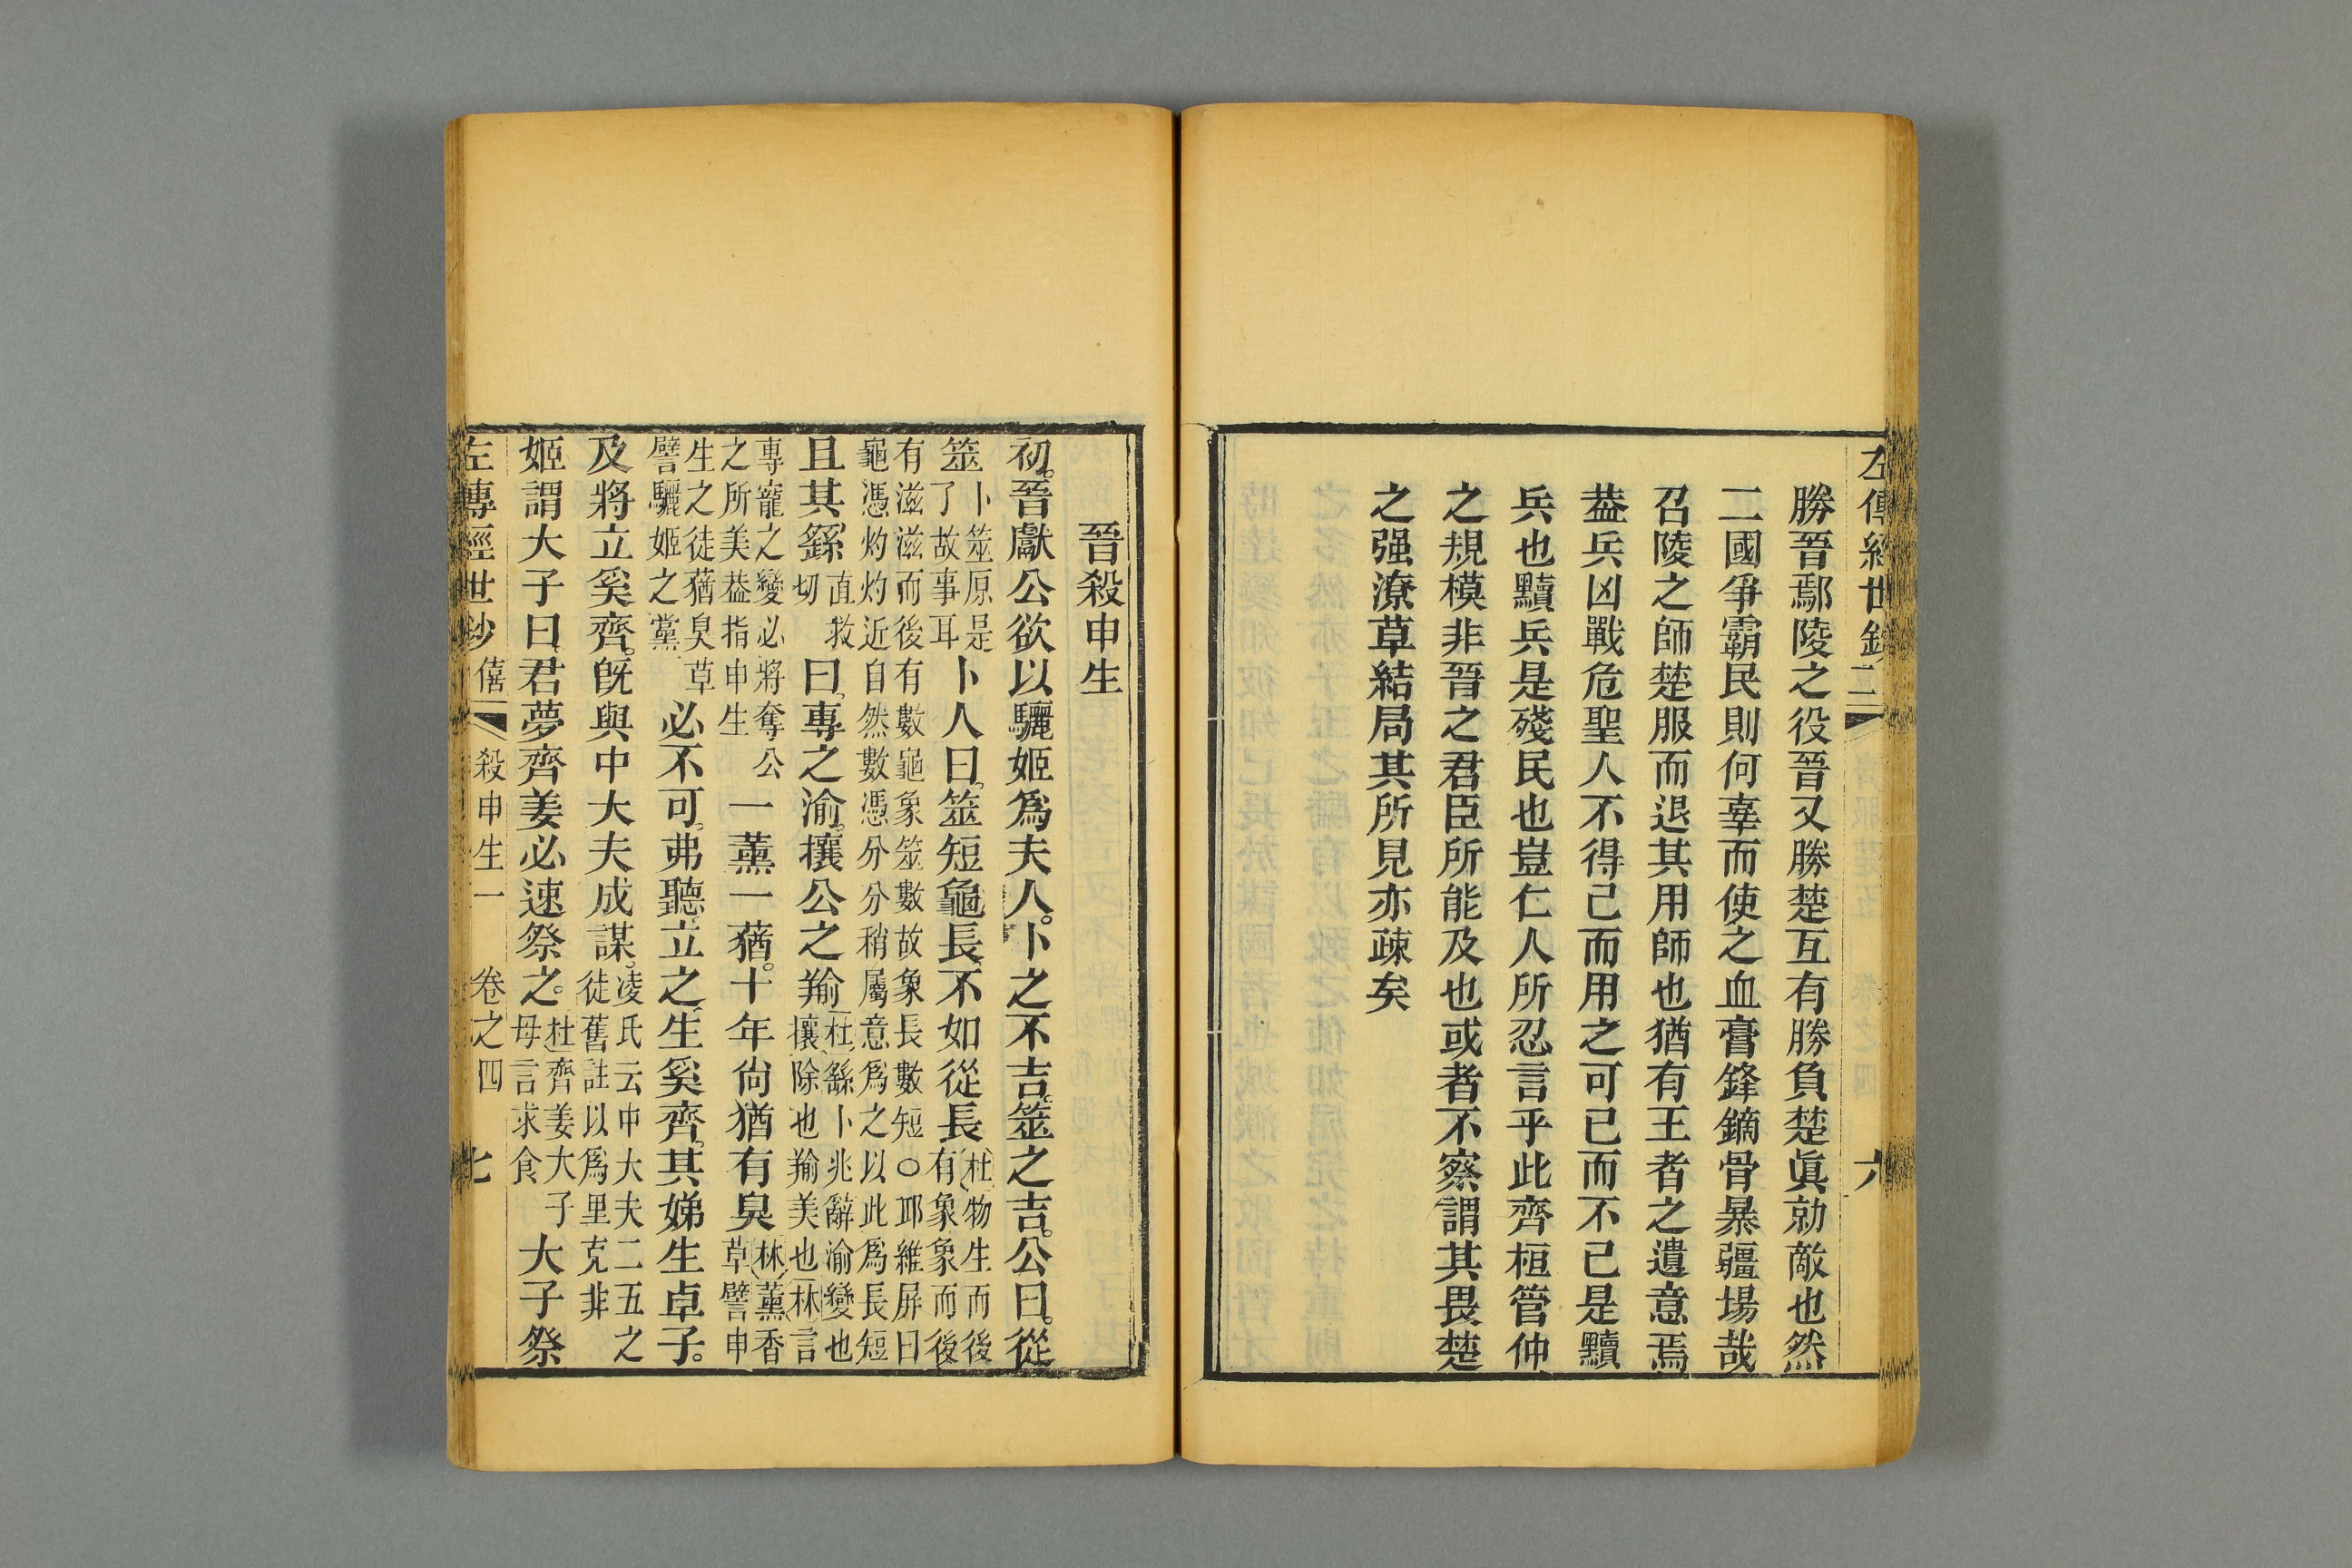 左傳經世鈔
六
勝晉鄢陵之役晉又勝楚互有勝負楚眞勍敵也然
二國爭霸民則何辜而使之血膏鋒鏑骨暴疆場哉
召陵之師楚服而退其用師也猶有王者之遺意焉
葢兵凶戰危聖人不得已而用之可已而不已是黷
兵也黷兵是殘民也豈仁人所忍言乎此齊桓管仲
之規模非晉之君臣所能及也或者不察謂其畏楚
之强潦草結局其所見亦疎矣
晉殺申生
初。晉獻公欲以驪姬爲夫人。卜之不吉。筮之吉。公曰。從
筮卜筮原是了故事耳卜人曰。筮短龜長、不如從長杜物生而後有象象而後
有滋滋而後有數龜象筮數故象長數短○邱維屏曰
龜憑灼灼近自然數憑分分稍屬意爲之以此爲長短
且其繇直救切曰、專之渝。攘公之羭杜繇卜兆辭渝變也攘除也羭美也林言
專寵之變必將奪公之所美葢指申生一薰一蕕。十年尚猶有臭林薰香草譬申
生之徒蕕臭草譬驪姬之黨必不可。弗聽、立之、生奚齊。其娣生卓子。
及將立奚齊。旣與中大夫成謀。凌氏云中大夫二五之徒舊註以爲里克非
姬謂大子曰。君夢齊姜必速祭之。杜齊姜大子母言求食大子祭
左傳經世鈔 僖 殺申生一 卷之四 七